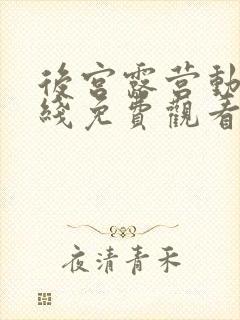 後宮露營動
綫免費觀看
夜清青禾